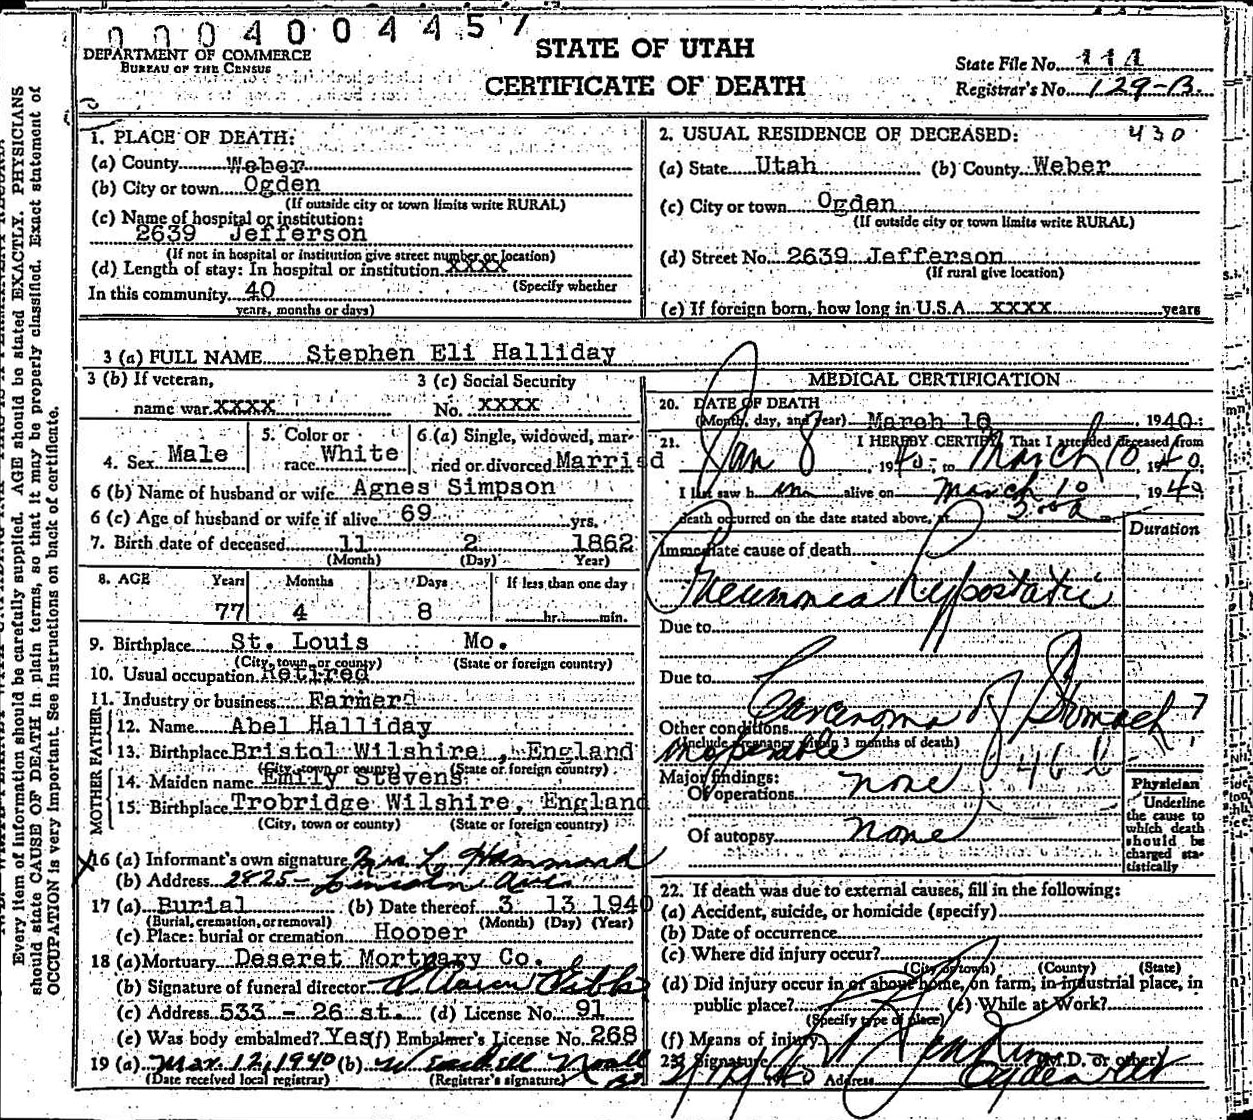 0 0 0 4 0 0 4 4 5 7
DEPARTMENT OF COMMERCE
BUREAU OF THE CENSUS
STATE OF UTAH
CERTIFICATE OF DEATH
State File No. 111
Registrar's No. 129-B.
Every item of information should be carefully supplied. AGE should be stated EXACTLY. PHYSICIANS
should state CAUSE OF DEATH in plain terms, so that it may be properly classified. Exact statement of
OCCUPATION is very important. See instructions on back of certificate.
1. PLACE OF DEATH:
(a) County Weber
(b) City or town Ogden
(If outside city or town limits write RURAL)
(c) Name of hospital or institution:
2639 Jefferson
(If not in hospital or institution give street number or location)
(d) Length of stay: In hospital or institution XXXX
(Specify whether
In this community 40
years, months or days)
2. USUAL RESIDENCE OF DECEASED: 430
(a) State Utah (b) County Weber
(c) City or town Ogden
(If outside city or town limits write RURAL)
(d) Street No. 2639 Jefferson
(If rural give location)
(e) If foreign born, how long in U.S.A. XXXX years
3 (a) FULL NAME Stephen Eli Halliday
3 (b) If veteran,
name war XXXX
3 (c) Social Security
No. XXXX
4. Sex Male
5. Color or
race White
6 (a) Single, widowed, mar-
ried or divorced Married
6 (b) Name of husband or wife Agnes Simpson
6 (c) Age of husband or wife if alive 69 yrs.
7. Birth date of deceased 11 2 1862
(Month) (Day) Year)
8. AGE Years Months Days If less than one day
77 4 8 hr. min.
9. Birthplace St. Louis Mo.
(City, town, or county) (State or foreign country)
10. Usual occupation Retired
11. Industry or business Farmer
FATHER
12. Name Abel Halliday
13. Birthplace Bristol Wilshire, England
(City, town or county) (State or foreign country)
MOTHER
14. Maiden name Emily Stevens
15. Birthplace Trobridge Wilshire, England
(City, town or county) (State or foreign country)
16 (a) Informant's own signature Mrs. L. Hammond
(b) Address 2825- Lincoln Ave
17 (a) Burial (b) Date thereof 3 13 1940
(Burial, cremation, or removal) (Month) (Day) (Year)
(c) Place: burial or cremation Hooper
18 (a) Mortuary Deseret Mortuary Co.
(b) Signature of funeral director Aaron
(c) Address 533 - 26 st. (d) License No. 91
(e) Was body embalmed? Yes (f) Embalmer's License No. 268
19 (a) Mar. 12, 1940 (b) W
(Date received local registrar) (Registrar's signature)
MEDICAL CERTIFICATION
20. DATE OF DEATH
(Month, day, and year) March 10, 1940
21. I HEREBY CERTIFY, That I attended deceased from
Jan 8, 1940, to March 10, 1940
I last saw h im alive on March 10, 1940
death occurred on the date stated above, at 3:00 a
Duration
Immediate cause of death
Pneumonia Hypostatic
Due to
Due to
Carcinoma of Stomach ?
Other conditions
(Include pregnancy within 3 months of death)
inoperable
46 b
Major findings:
Of operations none
Of autopsy none
Physician
Underline
the cause to
which death
should be
charged sta-
tistically
22. If death was due to external causes, fill in the following:
(a) Accident, suicide, or homicide (specify)
(b) Date of occurrence
(c) Where did injury occur?
(City or town) (County) (State)
(d) Did injury occur in or about home, on farm, in industrial place, in
public place? (e) While at Work?
(Specify type of place)
(f) Means of injury
23. Signature Jenkins (M.D. or other)
3/12/1940 Address Ogden Ut